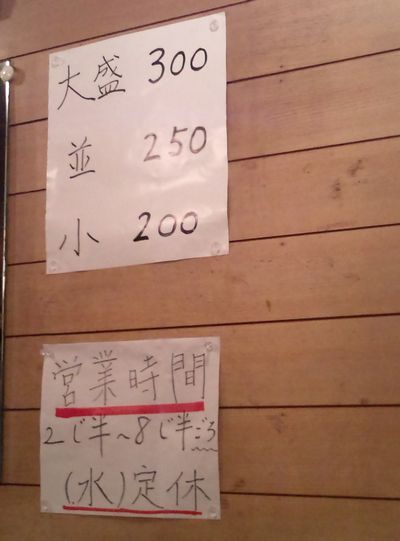 大盛 300
並 250
小 200
営業時間
2じ半～8じ半ごろ
(水)定休